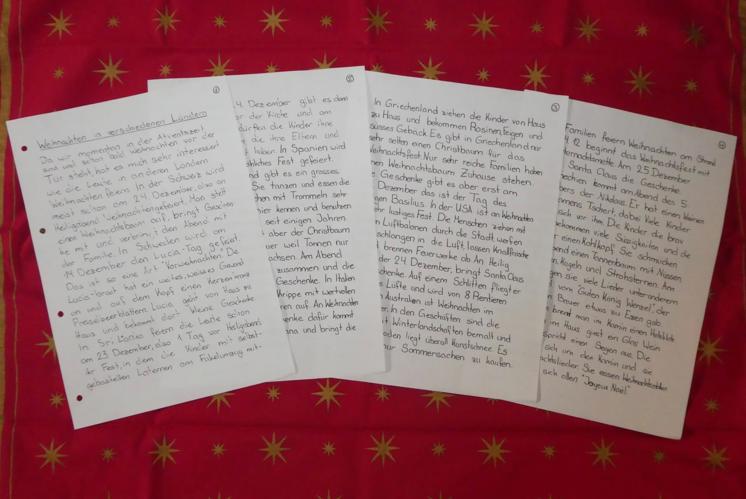 Weihnachten in verschiedenen Ländern
Da wir momentan in der Adventszeit
sind und schon bald Weihnachten vor der
Tür steht, hat es mich sehr interessiert
wie die Leute in anderen Ländern
Weihnachten feiern. In der Schweiz wird
meist schon am 24. Dezember, also an
Heiligabend Weihnachten gefeiert. Man stellt
einen Weihnachtsbaum auf, bringt Geschen
ke mit und verbringt den Abend mit
der Familie. In Schweden wird am
den Lucia-Tag gefeiert.
Das ist so eine Art Vorweihnachten. Die
Lucia-braut hat ein weites, weisses Gewand
an und auf dem Kopf einen Kerzenkranz
Lucia geht von Haus zu
Haus und bekommt dort kleine Geschenke
In Sri Lanka feiern die Leute schon
am 23. Dezember, also 1 Tag vor Heiligabend
ihr Fest, in dem die Kinder mit selbst-
gebastelten Laternen am Fakelumzug mit-
4. Dezember gibt es dann
der Küche und am
dürfen die Kinder ihre
die ihre Eltern und
haben. In Spanien wird
Fest gefeiert.
und gibt es ein grosses
Sie tanzen und essen die
mit Trommeln sehr
hier kennen und benutzen
seit einigen Jahren
aber der Christbaum
er weil Tannen nur
achsen. Am Abend
zusammen und die
Geschenke. In Italien
Krippe mit wertvollen
auf. An Weihnachten
enke dafür kommt
ana und bringt die
In Griechenland ziehen die Kinder von Haus
zu Haus und bekommen Rosinen, Feigen und
süsses Gebäck. Es gibt in Griechenland nur
sehr selten einen Christbaum für das
Weihnachtsfest. Nur sehr reiche Familien haben
en Weihnachtsbaum Zuhause stehen.
Geschenke gibt es aber erst am
Dezember das ist der Tag des
gen Basilius. In der USA ist an Weihnachten
lustiges Fest. Die Menschen ziehen mit
Luftballonen durch die Stadt werfen
schlangen in die Luft, lassen Knallfrösche
brennen Feuerwerke ab. An Heilig
der 24. Dezember, bringt Santa Claus
schenke. Auf einem Schlitten fliegt er
Lüfte und wird von 8 Rentieren
Australien ist Weihnachten im
er. In den Geschäften sind die
t Winterlandschaften bemalt und
oden liegt überall Kunstschnee. Es
nur Sommersachen zu kaufen.
Familien feiern Weihnachten am Strand
4.12. beginnt das Weihnachtsfest mit
ternachtsmette. Am 25. Dezember
Santa Claus die Geschenke.
chechien kommt am Abend des 5.
bers der Nikolaus. Er hat einen kleinen
mens Tschert dabei. Viele Kinder
sich vor ihm. Die Kinder die brav
bekommen viele Süssigkeiten und die
r einen Kohlkopf. Sie schmücken
bend einen Tannenbaum mit Nüssen
n, Kugeln und Strohsternen. Am
en sie viele Lieder unteranderem
vom "Guten König Wenzel", der
n Bauer etwas zu Essen gab.
brennt man im Kamin einen
im Haus giest ein Glas Wein
spricht einen Segen aus. Die
sich um den Kamin und sie
achtslieder. Sie essen Weihnachts
sich allen "Joyeux Noel".